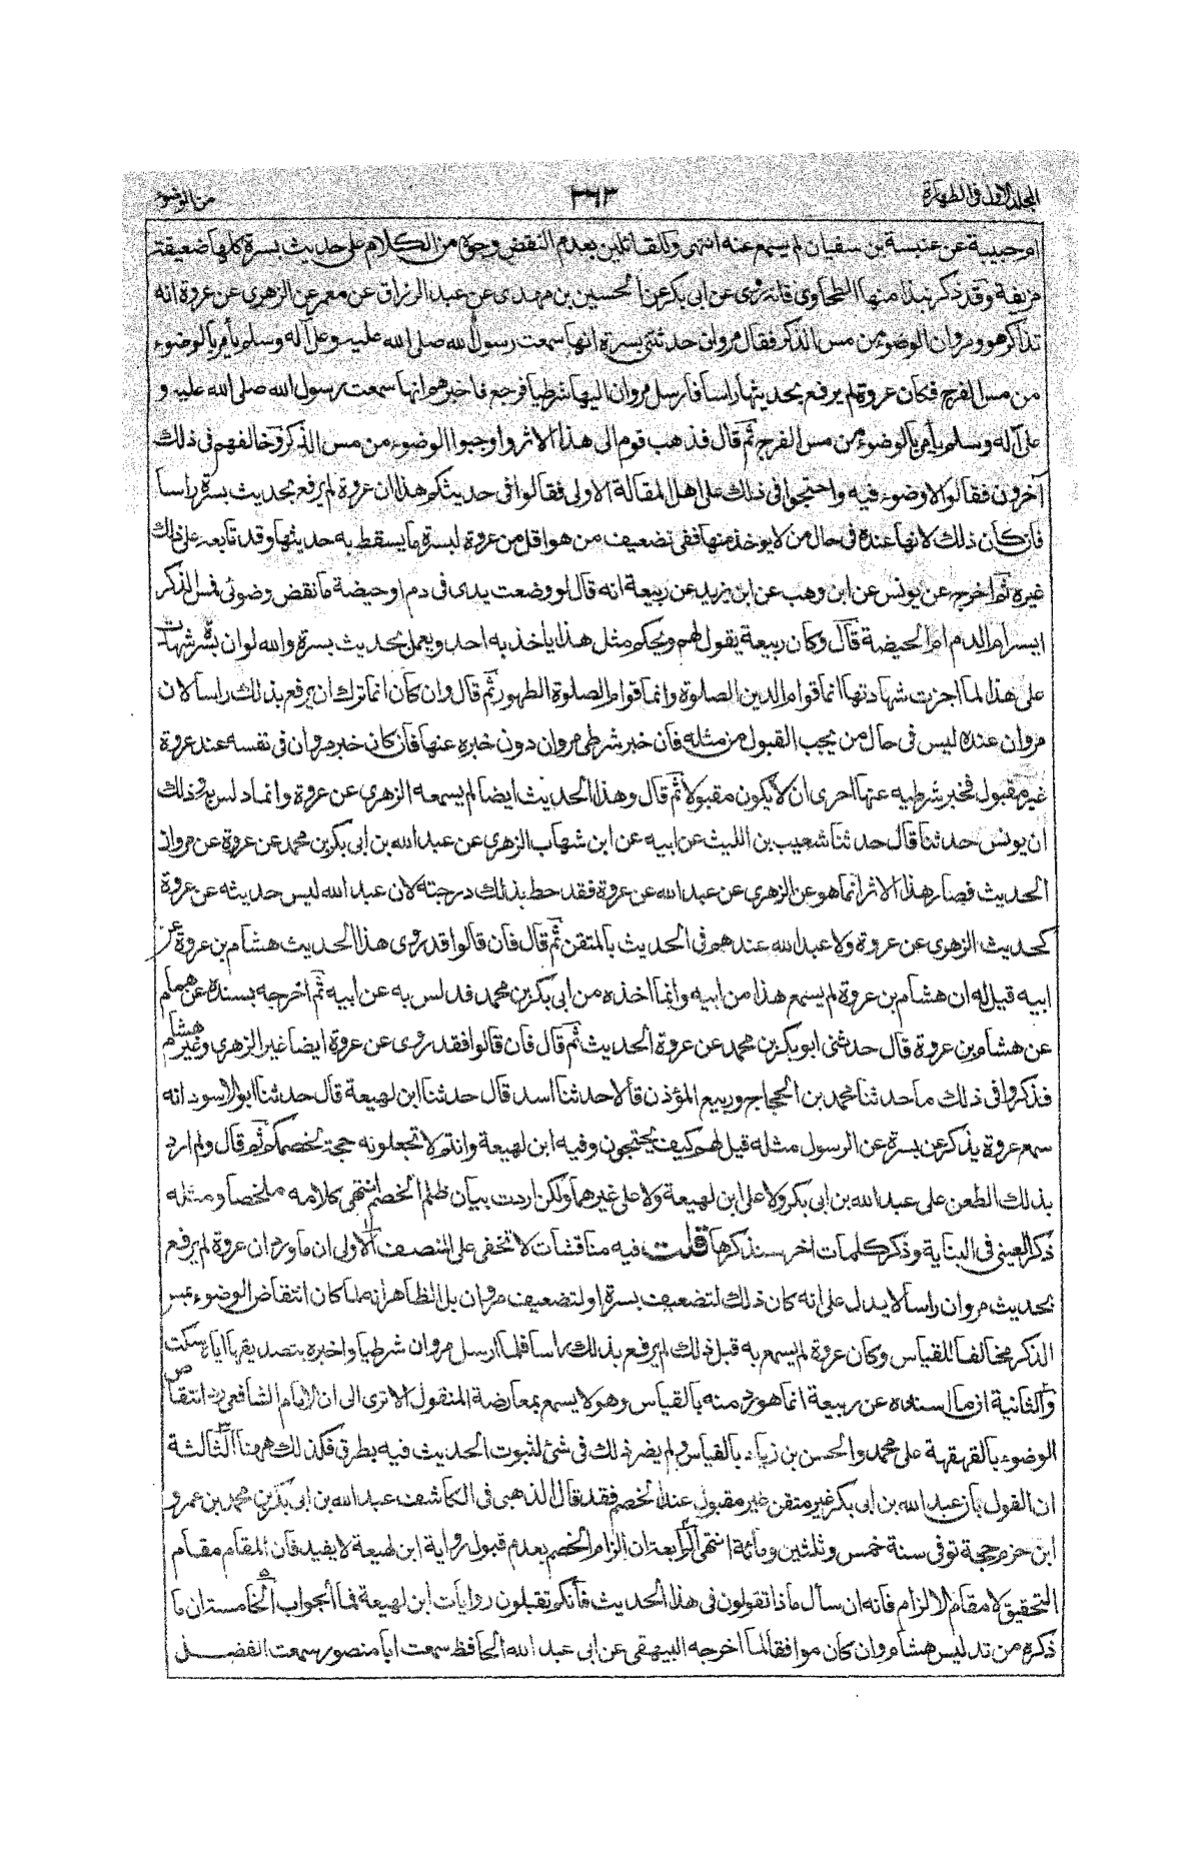 المجلد الاول فى الطهارة ٣٦٣ من الوضوء
ام حبيبة عن عنبسة بن سفيان لم يسمع عنه انتهى وللقائلين بعدم النقض وجوه من الكلام على حديث بسرة كلها ضعيفة
مزيفة وقد ذكر نبذا منها الطحاوى فانه روى عن ابى بكر عن الحسين بن مهدى عن عبد الرزاق عن معمر عن الزهرى عن عروة انه
تذاكر هو ومروان الوضوء من مس الذكر فقال مروان حدثتنى بسرة انها سمعت رسول الله صلى الله عليه وعلى آله وسلم يأمر بالوضوء
من مس الفرج فكان عروة لم يرفع بحديثها رأسا فارسل مروان اليها شرطيا فرجع فاخبرهم انها سمعت رسول الله صلى الله عليه و
على آله وسلم يأمر بالوضوء من مس الفرج ثم قال فذهب قوم الى هذا الاثر واوجبوا الوضوء من مس الذكر وخالفهم فى ذلك
آخرون فقالوا لا وضوء فيه واحتجوا فى ذلك على اهل المقالة الاولى فقالوا فى حديثكم هذا ان عروة لم يرفع بحديث بسرة راسا
فان كان ذلك لانها عنده فى حال من لا يوخذ منها ففى تضعيف من هو اقل من عروة لبسرة ما يسقط به حديثها وقد تابعه على ذلك
غيره ثم اخرج عن يونس عن ابن وهب عن ابن يزيد عن ربيعة انه قال لو وضعت يدى فى دم او حيضة ما نقض وضوئى فمس الذكر
ايسر ام الدم ام الحيضة قال وكان ربيعة يقول لهم ويحكم مثل هذا ياخذ به احد ويعمل بحديث بسرة والله لو ان بسرة شهدت
على هذا لما اجزت شهادتها انما قوام الدين الصلوة وانما قوام الصلوة الطهور ثم قال وان كان انما ترك ان يرفع بذلك راسا لان
مروان عنده ليس فى حال من يجب القبول من مثله فان خبر شرطى مروان دون خبره عنها فان كان خبر مروان فى نفسه عند عروة
غير مقبول فخبر شرطيه عنها احرى ان لا يكون مقبولا ثم قال وهذا الحديث ايضا لم يسمعه الزهرى عن عروة وانما دلس به وذلك
ان يونس حدثنا قال حدثنا شعيب بن الليث عن ابيه عن ابن شهاب الزهرى عن عبد الله بن ابى بكر بن محمد عن عروة عن مروان
الحديث فصار هذا الاثر انما هو عن الزهرى عن عبد الله عن عروة فقد حط بذلك درجته لان عبد الله ليس حديثه عن عروة
كحديث الزهرى عن عروة ولا عبد الله عندهم فى الحديث بالمتقن ثم قال فان قالوا قد روى هذا الحديث هشام بن عروة عن
ابيه قيل له ان هشام بن عروة لم يسمع هذا من ابيه وانما اخذه من ابى بكر بن محمد فدلس به عن ابيه ثم اخرجه بسنده عن همام
عن هشام بن عروة قال حدثنى ابو بكر بن محمد عن عروة الحديث ثم قال فان قالوا فقد روى عن عروة ايضا غير الزهرى وغير هشام
فذكروا فى ذلك ما حدثنا محمد بن الحجاج وربيع المؤذن قالا حدثنا اسد قال حدثنا ابن لهيعة قال حدثنا ابو الاسود انه
سمع عروة يذكر عن بسرة عن الرسول مثله قيل لهم كيف يحتجون وفيه ابن لهيعة وانتم لا تجعلونه حجة لخصمكم ثم قال ولم ارد
بذلك الطعن على عبد الله بن ابى بكر ولا على ابن لهيعة ولا على غيرهما ولكن اردت بيان ظلم الخصم انتهى كلامه ملخصا ومثله
ذكر العينى فى البناية وذكر كلمات اخر سنذكرها قلت فيه مناقشات لا تخفى على المنصف الاولى ان ما ورد ان عروة لم يرفع
بحديث مروان راسا لا يدل على انه كان ذلك لتضعيف بسرة او لتضعيف مروان بل الظاهر انه لما كان انتقاض الوضوء بمس
الذكر مخالفا للقياس وكان عروة لم يسمع به قبل ذلك لم يرفع بذلك راسا فلما ارسل مروان شرطيا واخبره بتصديقها اياه سكت
والثانية ان ما اسنده عن ربيعة انما هو رد منه بالقياس وهو لا يسمع بمعارضة المنقول الا ترى الى ان الامام الشافعى رد انتقاص
الوضوء بالقهقهة على محمد والحسن بن زياد بالقياس ولم يضر ذلك فى شئ لثبوت الحديث فيه بطرق فكذلك ههنا الثالثة
ان القول بان عبد الله بن ابى بكر غير متقن غير مقبول عند الخصم فقد قال الذهبى فى الكاشف عبد الله بن ابى بكر بن محمد بن عمرو
ابن حزم حجة توفى سنة خمس وثلثين ومائة انتهى الرابعة ان الزام الخصم بعدم قبول رواية ابن لهيعة لا يفيد فان المقام مقام
التحقيق لا مقام الالزام فانه ان سأل ماذا تقولون فى هذا الحديث فانكم تقبلون روايات ابن لهيعة فما الجواب الخامسة ان ما
ذكره من تدليس هشام وان كان موافقا لما اخرجه البيهقى عن ابى عبد الله الحافظ سمعت ابا منصور سمعت الفضل